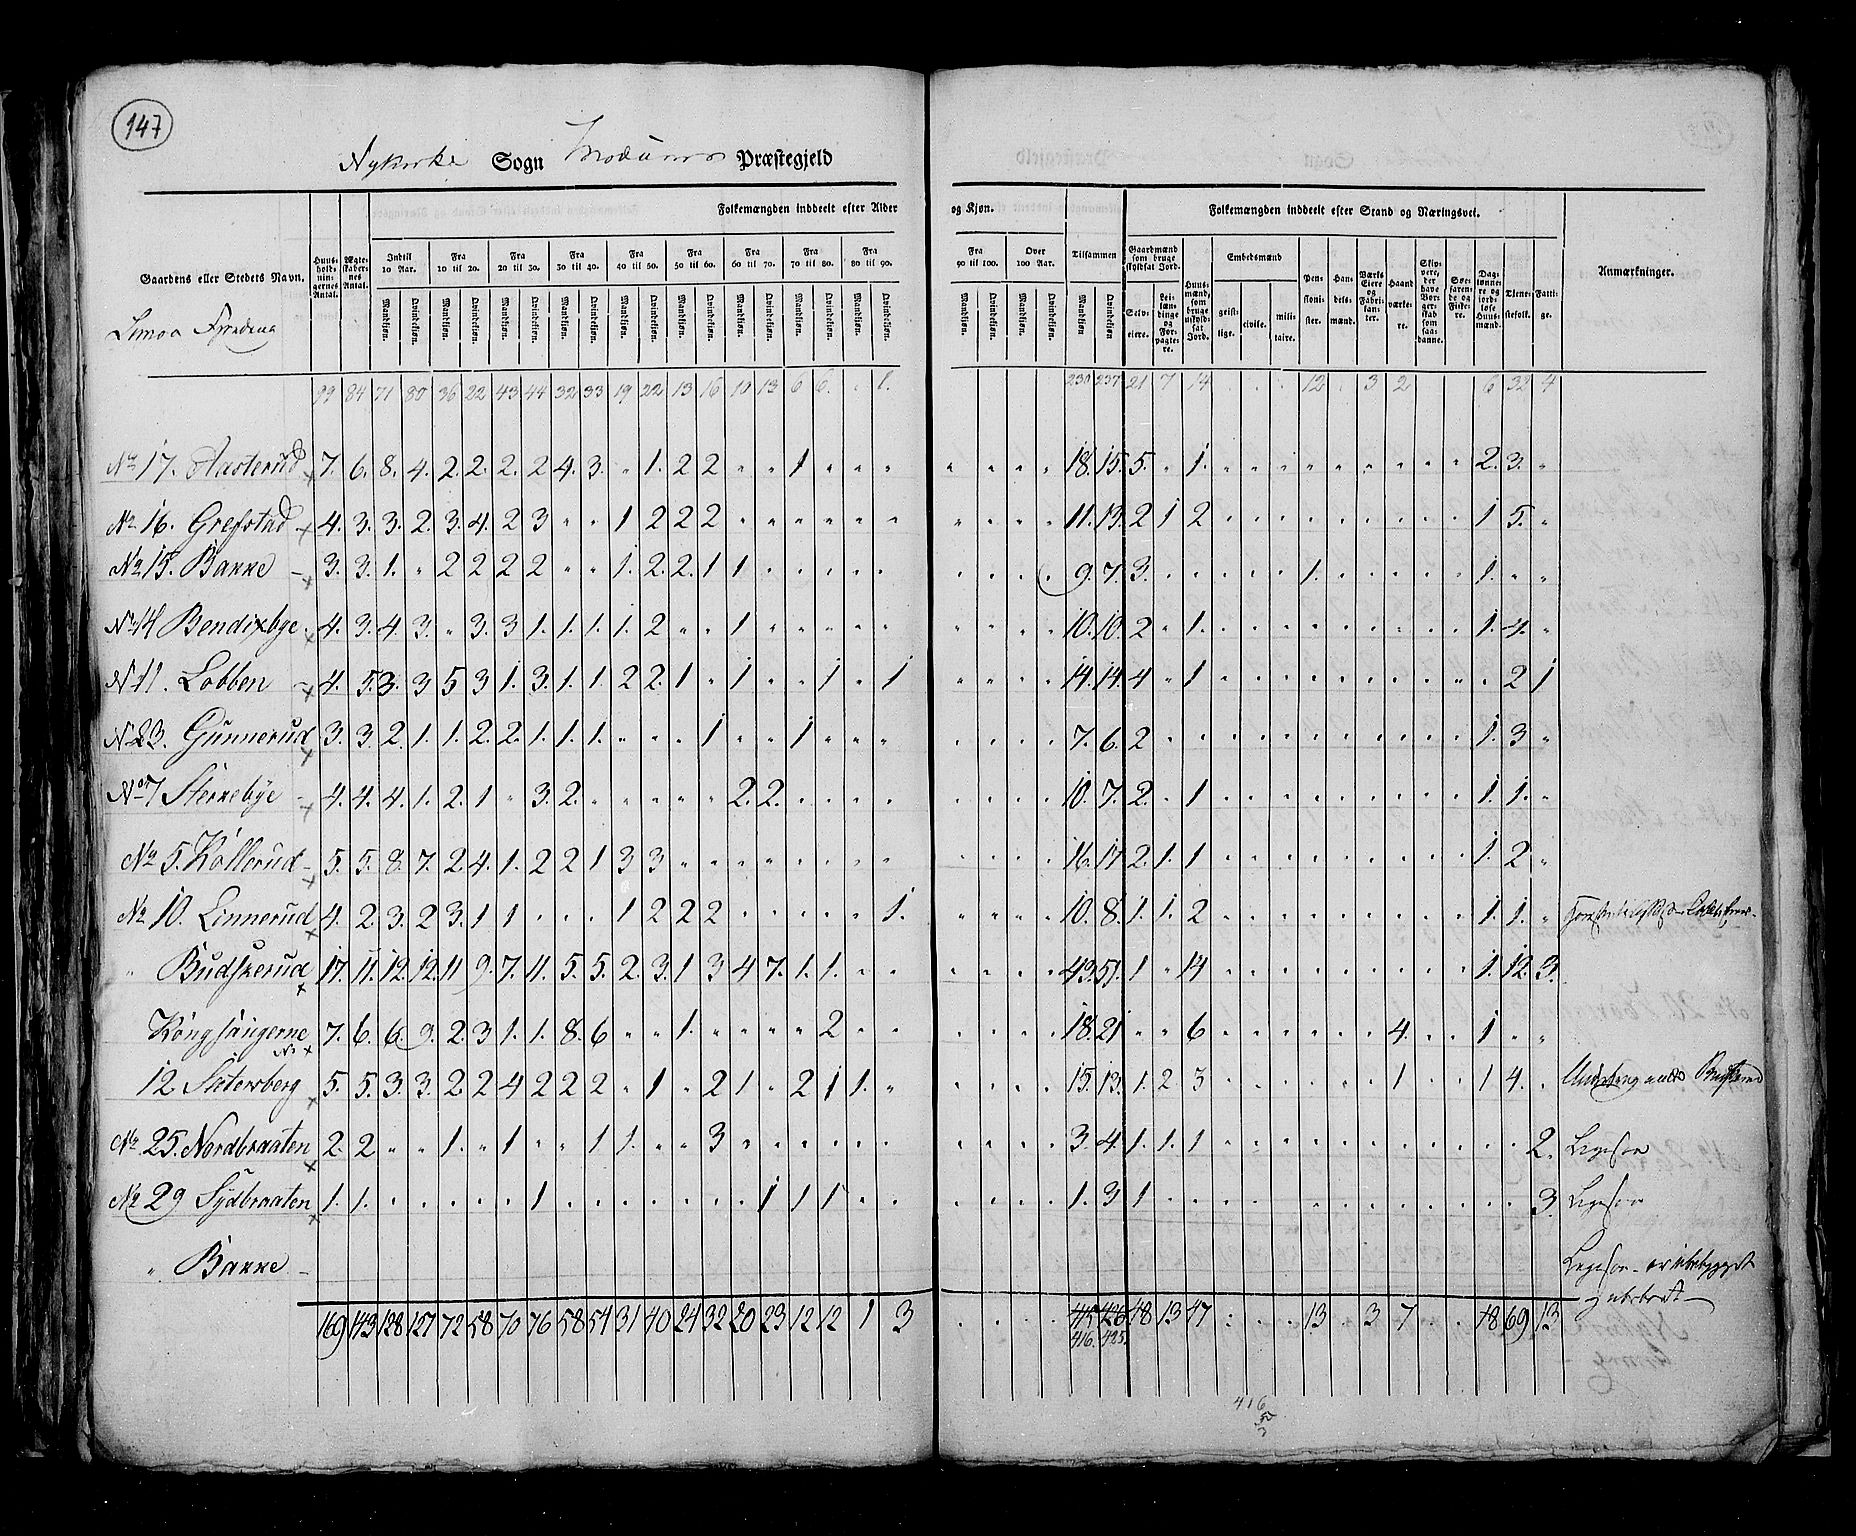 147
Nykirke Sogn Modums Præstegjeld
Folkemængden inddeelt efter Alder og Kjøn. Folkemængden inddeelt efter Stand og Næringsvei.
Gaardens eller Stedets Navn. Huusholdningernes Antal. Ægteskabernes Antal. Indtil 10 Aar. Fra 10 til 20. Fra 20 til 30. Fra 30 til 40. Fra 40 til 50. Fra 50 til 60. Fra 60 til 70. Fra 70 til 80. Fra 80 til 90. Fra 90 til 100. Over 100 Aar. Tilsammen Gaardmænd som bruge skyldsat Jord. Huusmænd, som bruge uskyldsat Jord. Embedsmænd Pensionister. Handelsmænd. Værks Eiere og Fabrikanter. Haandværkere. Skivvere, der have Borgerskab som saadanne. Søefarende og Fiskere. Daglønnere og jordløse Huusmænd. Tjenestefolk. Fattige. Anmærkninger.
Mandkjøn. Qvindekjøn. Mandkjøn. Qvindekjøn. Mandkjøn. Qvindekjøn. Mandkjøn. Qvindekjøn. Mandkjøn. Qvindekjøn. Mandkjøn. Qvindekjøn. Mandkjøn. Qvindekjøn. Mandkjøn. Qvindekjøn. Mandkjøn. Qvindekjøn. Mandkjøn. Qvindekjøn. Mandkjøn. Qvindekjøn. Mandkjøn. Qvindekjøn. Selveiere. Leilændinge og Forpagtere. geistlige. civile. militaire.
99 84 71 80 36 22 43 44 32 33 19 22 13 16 10 13 6 6. " 1. 230 237 21 7 14 . . . 12 . 3 2 6 32 4
No 17. Aasterud 7. 6. 8. 4. 2. 2. 2. 2 4. 3. " 1. 2 2 " " 1 " " " " " " " 18. 15. 5. " 1. " " " " " " " " " " 2. 3. "
No 16. Grefstad 4. 3. 3. 2. 3. 4. 2 3 " " 1 2 2 2 " " " " " " " " " " 11. 13. 2 1 2 " " " " " " " " " " 1 5. "
No 15. Bakke 3. 3. 1. " 2 2 2 2 " " 1. 2 2. 1 1 " " " " " " " " " 9. 7. 3. " " " " " 1. " " " " " 1. " "
No 14 Bendixbye 4. 3. 4. 3. " 3. 3 1. 1. 1. 1. 2 " " 1 " " " " " " " " " 10. 10. 2 " 1. " " " " " " " " " " 1. 4. "
N 11. Lobben 4. 5. 3. 3 5 3 1. 3. 1. 1 2 2. 1 " 1 " " 1 " 1 " " " " 14. 14. 4 " 1 " " " " " " " " " " " 2 1
N 23. Gunnerud 3. 3. 2. 1. 1. 2. 2. 1. 1. 1. " " " 1 " " 1 " " " " " " " 7. 6. 2 " " " " " " " " " " " " 1. 3 "
No 7 Sterkebye 4. 4. 4. 1. 2. 1 " 3. 2. " " " " " 2. 2. " " " " " " " " 10. 7. 2. " 1 " " " " " " " " " " 1. 1. "
No 5. Kollerud 5. 5. 8. 7. 2. 4. 1. 2 2 1 3 3 " " " " " " " " " " " " 16. 17 2. 1. 1 " " " " " " " " " " 1. 2 "
No 10. Linnerud 4. 2. 3. 2 3. 1 1 " " " 1 2 2 2 " " " " " 1. " " " " 10. 8. 1. 1. 2 " " " " " " " " " " 1. 1. "
" Budskerud 17. 11. 12. 12. 11 9. 7. 11. 5. 5. 2. 3. 1 3 4 7. 1. 1. " " " " " " 43. 51. 1 " 14 " " " " " " " " " " 1. 12. 3.
Kongssangerne 7. 6. 6. 9. 2. 3 1. 1. 8. 6 " " 1. " " " " 2 " " " " " " 18. 21 " " 6 " " " " " " 4. " " " 1 " "
No 12 Sætersberg 5. 5. 3. 3. 2 2 4 2 2 2 " 1 " 2 1 " 2 1 1. " " " " " 15. 13. 1. 2 3 " " " " " " 1 " " " 1 4. "
No 25. Nordbraaten 2. 2 " " 1. " 1 " " 1 1. " " 3 " " " " " " " " " " 3. 4. 1. 1. 1 " " " " " " " " " " " " 2. Ligesaa
No 29 Sydbraaten 1. 1. " " " " " 1 " " " " " " " 1 1 1 " " " " " " 1. 3 1 " " " " " " " " " " " " " " 3. Ligesaa
" Bakke Ligesaa er ubebygget
169 143 128 127 72 58 70 76 58 54 31 40 24 32 20 23 12 12 1 3 . . . . 415 426 48 13 47 : . . 13 . 3 7 . . 18 69 13
416. 425.
416